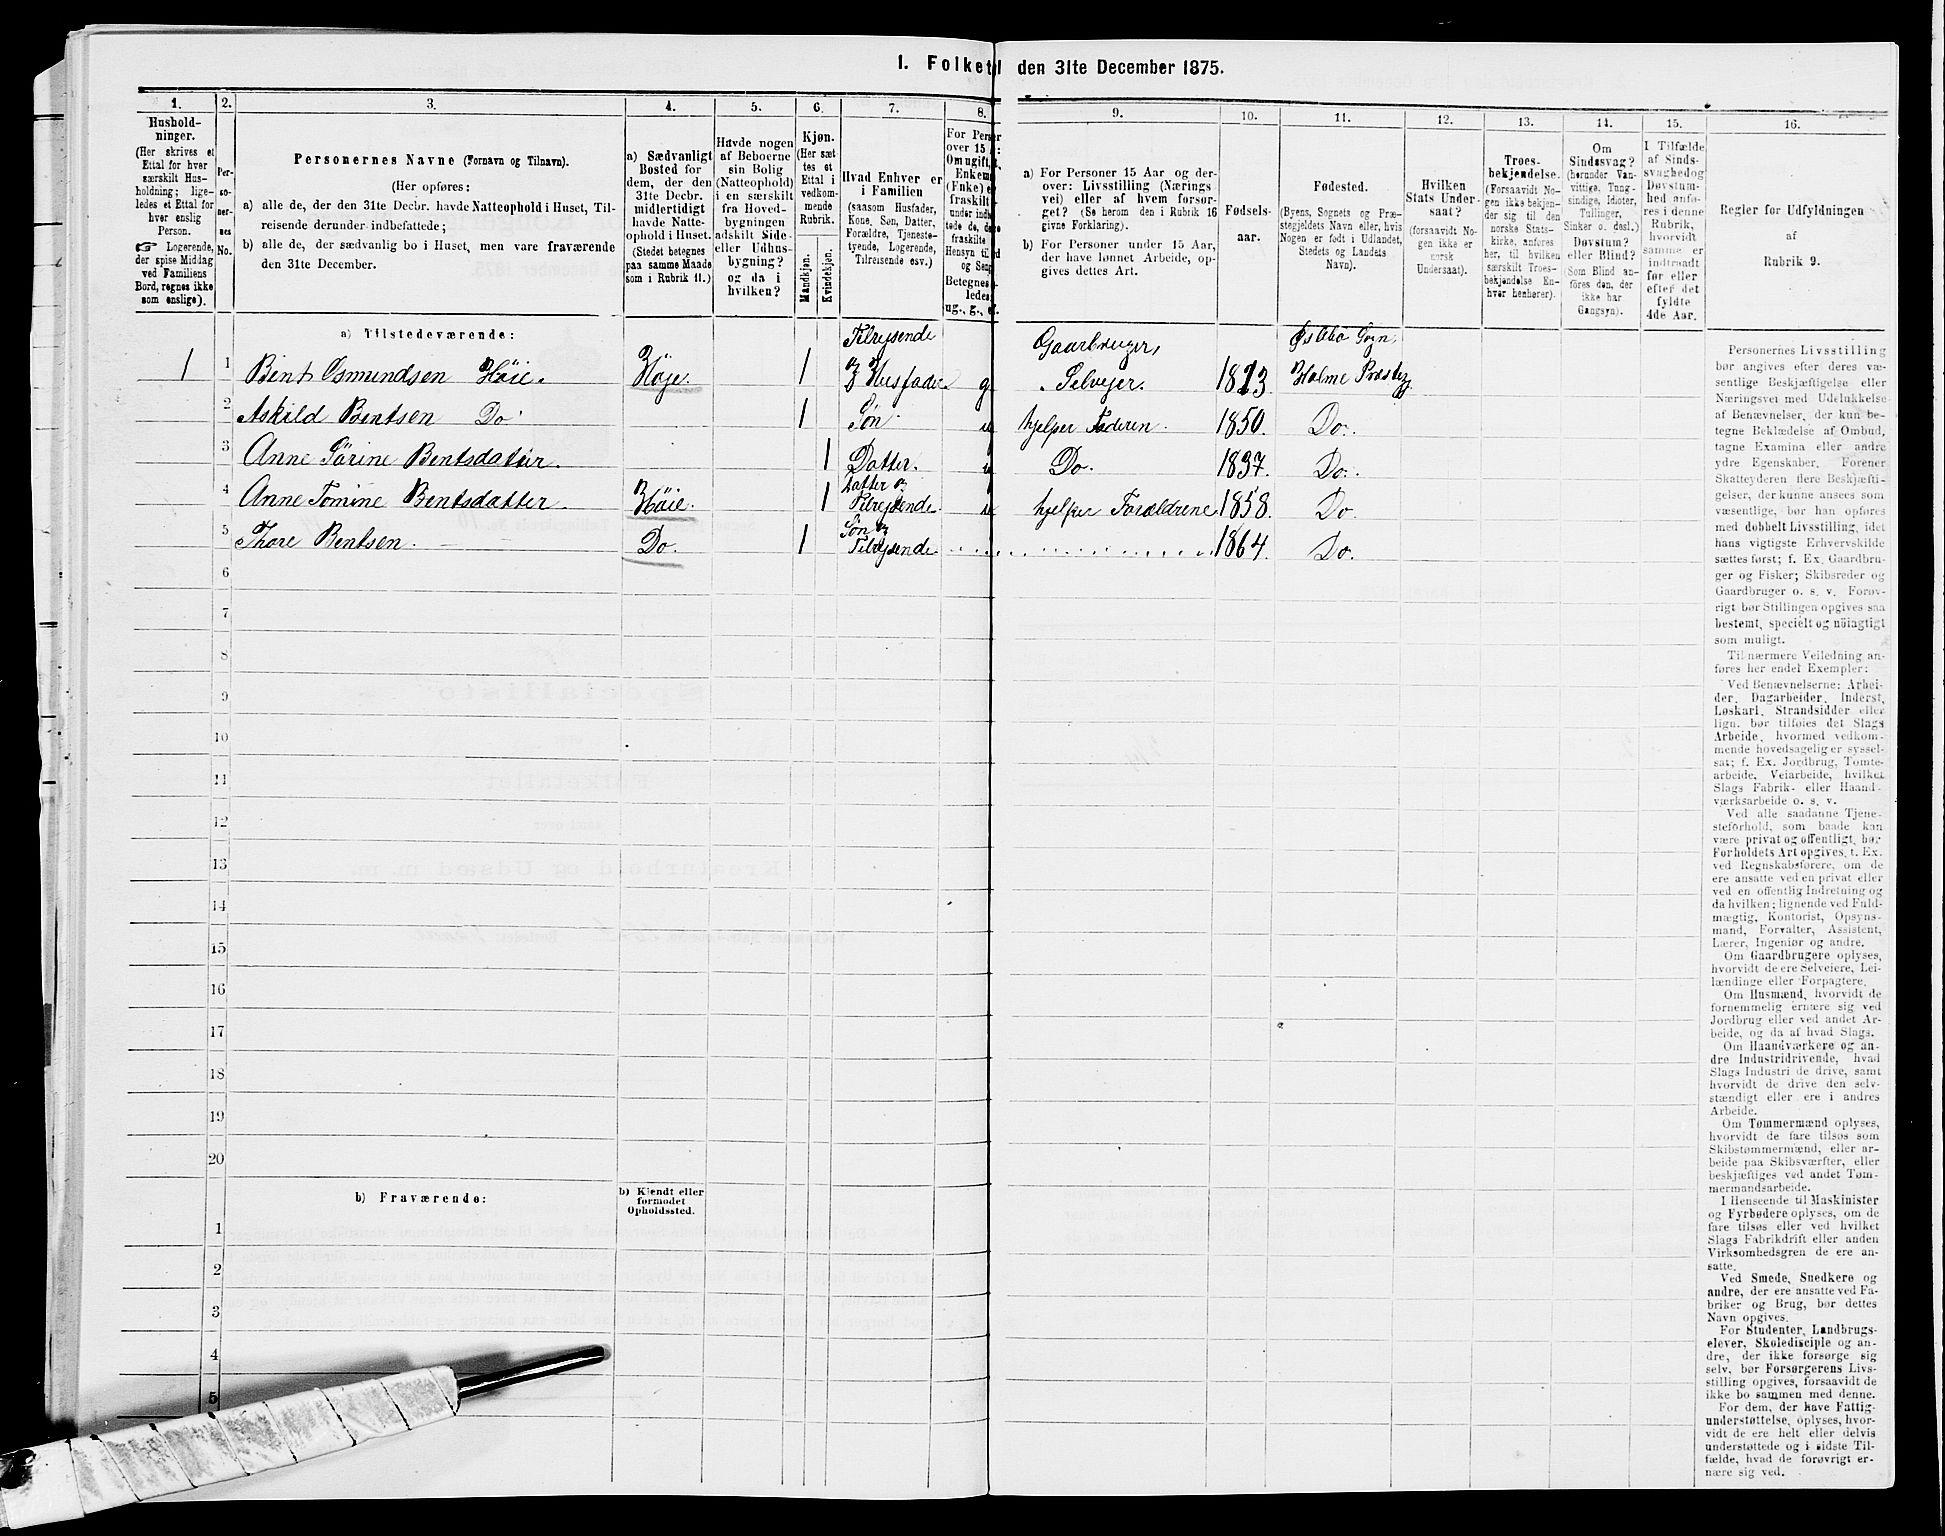 1. Folket
den 31te December 1875.
1.
2.
3.
4.
5.
6.
7.
8.
9.
10.
11.
12.
13.
14.
15.
16.
Hushold-
ninger.
(Her skrives et
Ettal for hver
særskilt Hus-
holdning; lige-
ledes et Ettal for
hver enslig
Person.
☞ Logerende,
der spise Middag
ved Familiens
Bord, regnes ikke
som enslige).
Per-
so-
ner-
nes
No.
Personernes Navne (Fornavn og Tilnavn).
(Her opføres:
a) alle de, der den 31te Decbr. havde Natteophold i Huset, Til-
reisende derunder indbefattede;
b) alle de, der sædvanlig bo i Huset, men vare fraværende
den 31te December.
a) Sædvanligt
Bosted for
dem, der den
31te Decbr.
midlertidigt
havde Natte-
ophold i Huset.
(Stedet betegnes
paa samme Maade
som i Rubrik 11.)
Havde nogen
af Beboerne
sin Bolig
(Natteophold)
i en særskilt
fra Hoved-
bygningen
adskilt Side-
eller Udhus-
bygning?
og da i
hvilken?
Kjøn.
(Her sæt
tes et
Ettal i
vedkom-
mende
Rubrik.
Mandkjøn.
Kvindekjøn.
Hvad Enhver er
i Familien
(saasom Husfader,
Kone, Søn, Datter,
Forældre, Tjeneste-
tyende, Logerende,
Tilreisende osv.)
For Perser
over 15 A:
Om ugift,
Enkem
(Fnke) e
fraskilt
a) For Personer 15 Aar og der-
over: Livsstilling (Nærings
vei) eller af hvem forsør-
get? (Se herom den i Rubrik 16
givne Forklaring).
b) For Personer under 15 Aar,
der have lønnet Arbeide, op-
gives dettes Art.
Fødsels-
aar.
Fødested.
(Byens, Sognets og Præ-
stegjeldets Navn eller, hvis
Nogen er født i Udlandet,
Stedets og Landets
Navn).
Hvilken
Stats Under-
saat?
(forsaavidt No-
gen ikke er
norsk
Undersaat).
Troes-
bekjendelse.
(Forsaavidt No-
gen ikke bekjen-
der sig til den
norske Stats-
kirke, anføres
her, til hvilken
særskilt Troes-
bekjendelse En-
hver henhører).
Om
Sindssvag?
(herunder Van-
vittige, Tung-
sindige, Idioter,
Tullinger,
Sinker o. desl.)
Døvstum?
eller Blind?
(Som Blind an-
føres den, der
ikke har
Gangsyn).
I Tilfælde
af Sinds-
svaghed og
Døvstum-
hed anfø-
res i denne
Rubrik,
hvorvidt
samme er
indtraadt
før eller
efter det
fyldte
4de Aar.
Regler for Udfyldningen
af
Rubrik 9.
a) Tilstedeværende:
1 1 Bent Osmundsen Høie. Høje. 1 Tilreisende og Husfader g Gaarbruger, Selvejer. 1813 Øslebø Sogn, Holme Præstegj
2 Askild Bentsen Do 1 Søn u hjelper Faderen. 1850. Do.
3 Anne Sørine Bentsdatter. 1 Datter. u Do. 1837. Do.
4 Anne Tomine Bentsdatter Høie. 1 Datter og Tilrejsende. u hjelper Forældrene 1858. Do.
5 Thore Bentsen. Do. 1 Søn og Tilrejsende 1864. Do.
6
7
8
9
10
11
12
13
14
15
16
17
18
19
20
b) Fraværende:
b) Kjendt eller
formodet
Opholdssted.
1
2
3
4
5
Personernes Livsstilling
bør angives efter deres væ-
sentlige Beskjæftigelse eller
Næringsvei med Udelukkelse
af Benævnelser, der kun be-
tegne Beklædelse af Ombud,
tagne Examina eller andre
ydre Egenskaber. Forener
Skatteyderen flere Beskjæfti-
gelser, der kunne ansees som
væsentlige, bør han opføres
med dobbelt Livsstilling, idet
hans vigtigste Erhvervskilde
sættes først; f. Ex. Gaardbru-
ger og Fisker; Skibsreder og
Gaardbruger o. s. v. Forøv-
rigt bør Stillingen opgives saa
bestemt, specielt og nöiagtigt
som muligt.
Til nærmere Veiledning an-
føres her endel Exempler:
Ved Benævnelserne: Arbei-
der, Dagarbeider, Inderst,
Løskarl, Strandsidder eller
lign. bør tilføies det Slags
Arbeide, hvormed vedkom-
mende hovedsagelig er syssel-
sat; f. Ex. Jordbrug, Tomte-
arbeide, Veiarbeide, hvilket
Slags Fabrik- eller Haand-
værksarbeide o. s. v.
Ved alle saadanne Tjene-
steforhold, som baade kan
være privat og offentligt, bør
Forholdets Art opgives, t. Ex.
ved Regnskabsførere, om de
ere ansatte ved en privat eller
ved en offentlig Indretning og
da hvilken; lignende ved Fuld-
mægtig, Kontorist, Opsyns-
mand, Forvalter, Assistent,
Lærer, Ingeniør og andre.
Om Gaardbrugere oplyses,
hvorvidt de ere Selveiere, Lei-
lændinge eller Forpagtere.
Om Husmænd, hvorvidt de
fornemmelig ernære sig ved
Jordbrug eller ved andet Ar-
beide, og da af hvad Slags.
Om Haandværkere og an-
dre Industridrivende, hvad
Slags Industri de drive, samt
hvorvidt de drive den selv-
stændigt eller ere i andres
Arbeide.
Om Tømmermænd oplyses,
hvorvidt de fare tilsøs som
Skibstømmermænd, eller ar-
beide paa Skibsværfter, eller
beskjæftiges ved andet Tøm-
mermandsarbeide.
I Henseende til Maskinister
og Fyrbødere oplyses, om de
fare tilsøs eller ved hvilket
Slags Fabrikdrift eller anden
Virksomhedsgren de ere an-
satte.
Ved Smede, Snedkere og
andre, der ere ansatte ved Fa-
briker og Brug, bør dettes
Navn opgives.
For Studenter, Landbrugs-
elever, Skoledisciple og an-
dre, der ikke forsørge sig
selv, bør Forsørgerens Livs-
stilling opgives, forsaavidt de
ikke bo sammen med denne.
For dem, der have Fattig-
understøttelse, oplyses, hvor-
vidt de ere helt eller delvis
understøttede og i sidste Til-
fælde, hvad de forøvrigt er-
nære sig ved.